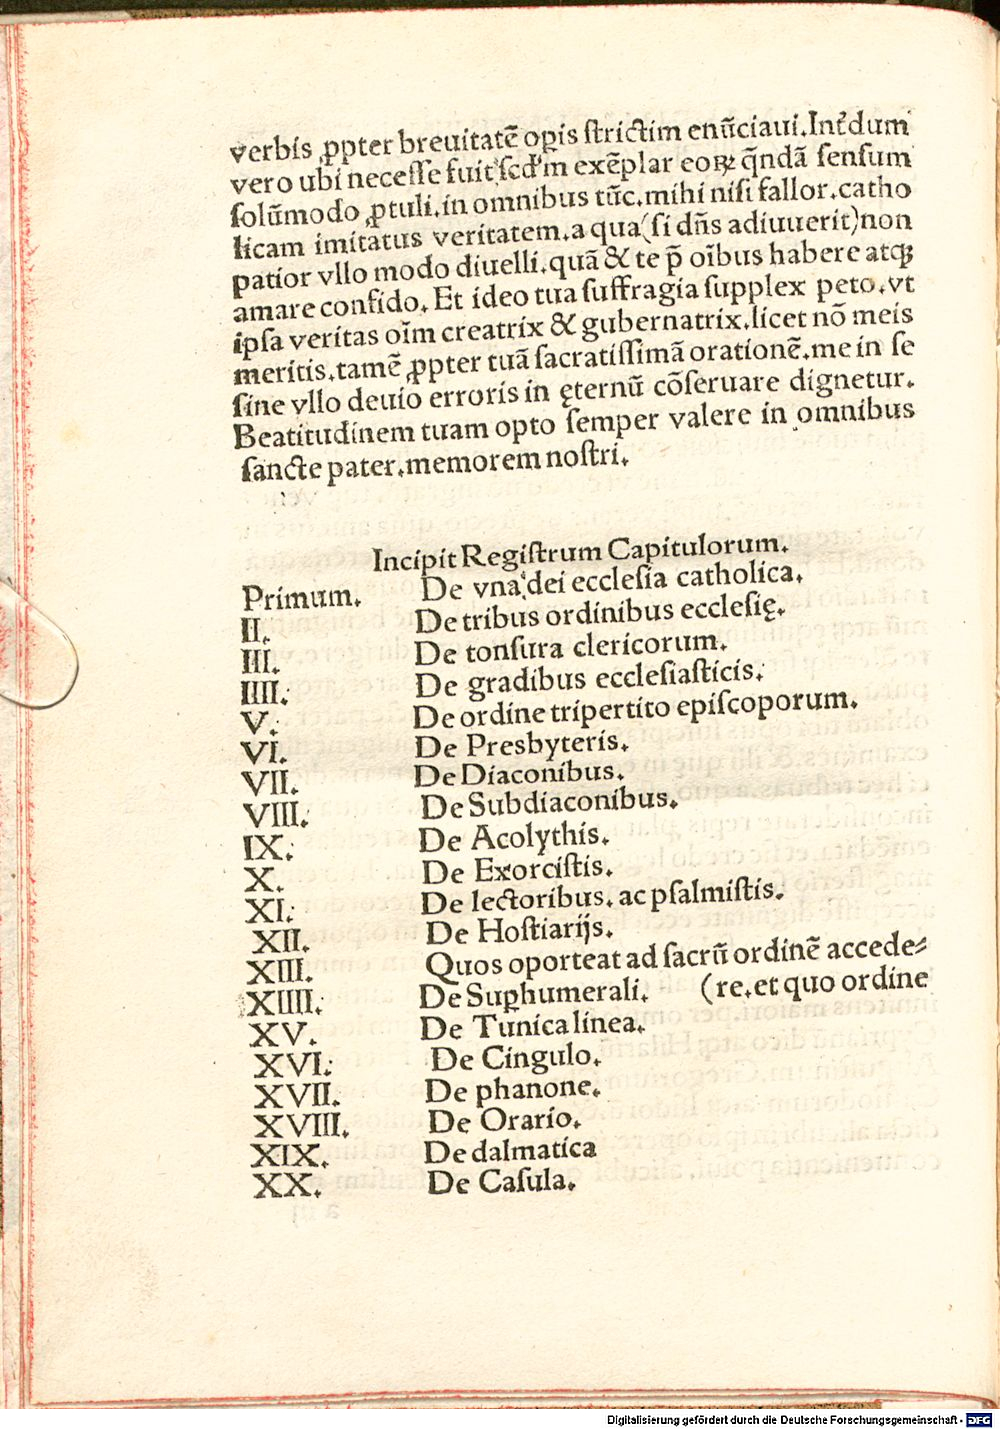 verbis ꝓpter breuitatē oꝑis ſtrictim enūciaui. Int̄dum
vero ubi neceſſe fuit ſcdꝰm exēplar eoꝝ q̄ndā ſenſum
ſolūmodo ꝓtuli. in omnibus tūc. mihi niſi fallor. catho
licam imitatus veritatem. a qua (ſi dn̄s adiuuerit) non
patior vllo modo diuelli. quā & te p̄ oībus habere atqꝫ
amare confido. Et ideo tua ſuffragia ſupplex peto. vt
ipſa veritas oīm creatrix & gubernatrix. licet nō meis
meritis. tamē ꝓpter tuā ſacratiſſimā orationē. me in ſe
ſine vllo deuio erroris in ęternū cōſeruare dignetur.
Beatitudinem tuam opto ſemper valere in omnibus
ſancte pater. memorem noſtri.
Incipit Regiſtrum Capitulorum.
Primum. De vna dei eccleſia catholica.
II. De tribus ordinibus eccleſię.
III. De tonſura clericorum.
IIII. De gradibus eccleſiaſticis.
V. De ordine tripertito epiſcoporum.
VI. De Presbyteris.
VII. De Diaconibus.
VIII. De Subdiaconibus.
IX. De Acolythis.
X. De Exorciſtis.
XI. De lectoribus. ac pſalmiſtis.
XII. De Hoſtiarijs.
XIII. Quos oporteat ad ſacrū ordinē accede⸗
XIIII. De Suꝑhumerali. (re. et quo ordine
XV. De Tunica linea.
XVI. De Cingulo.
XVII. De phanone.
XVIII. De Orario.
XIX. De dalmatica
XX. De Caſula.
Digitalisierung gefördert durch die Deutsche Forschungsgemeinschaft - DFG